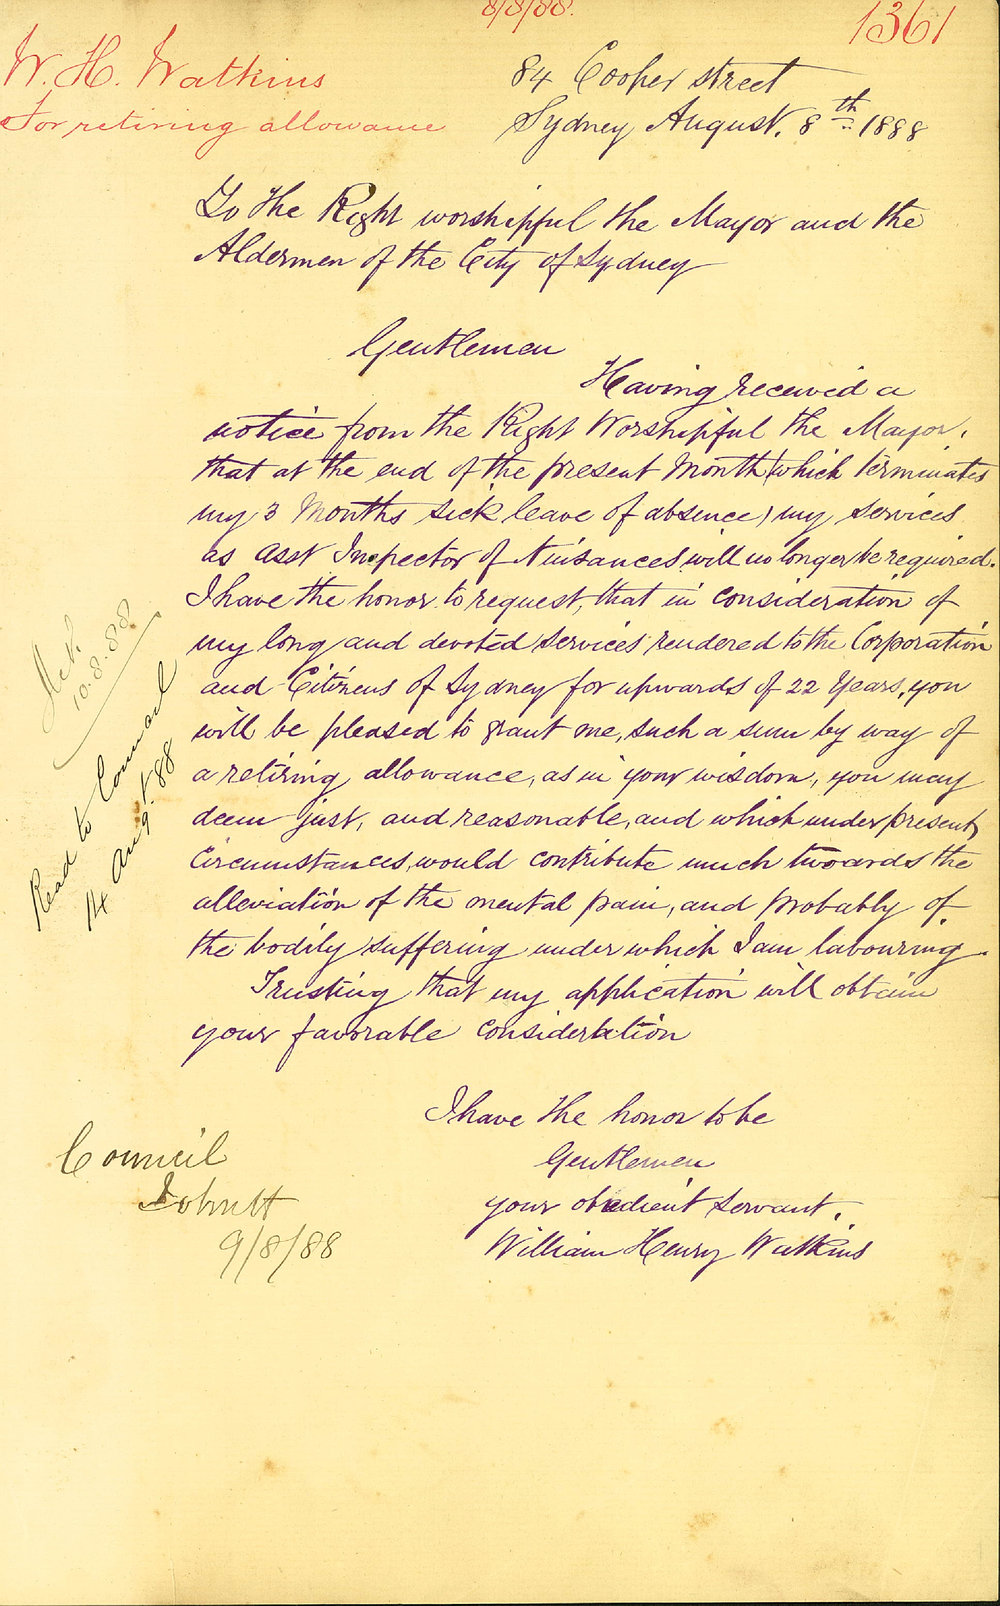 8/8/88.
1361
W. H. Watkins
For retiring allowance
84 Cooper street
Sydney August. 8th 1888
To the Right worshipful the Mayor and the
Aldermen of the City of Sydney
Gentlemen
Having received a
notice from the Right Worshipful the Mayor,
that at the end of the present Month (which terminates
my 3 Months sick leave of absence) my services
as Asst Inspector of Nuisances will no longer be required.
I have the honor to request, that in consideration of
my long and devoted services rendered to the Corporation
and Citizens of Sydney for upwards of 22 Years, you
will be pleased to grant me, such a sum by way of
a retiring allowance, as in your wisdom, you may
deem just, and reasonable, and which under present
Circumstances, would contribute much towards the
alleviation of the mental pain, and probably of
the bodily suffering under which I am labouring.
Trusting that my application will obtain
your favorable consideration
I have the honor to be
Gentlemen
your obedient servant.
William Henry Watkins
10.8.88
Read to Council
14 Aug. 88
Council
9/8/88